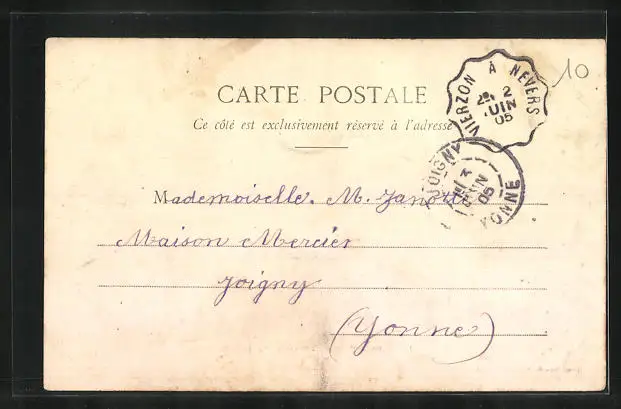 10
VIERZON À NEVERS
2E 2
JUIN
05
CARTE POSTALE
Ce côté est exclusivement réservé à l'adresse
JOIGNY
JUIN
05
YONNE
Mademoiselle. M.
Maison Mercier
Joigny
(Yonne)